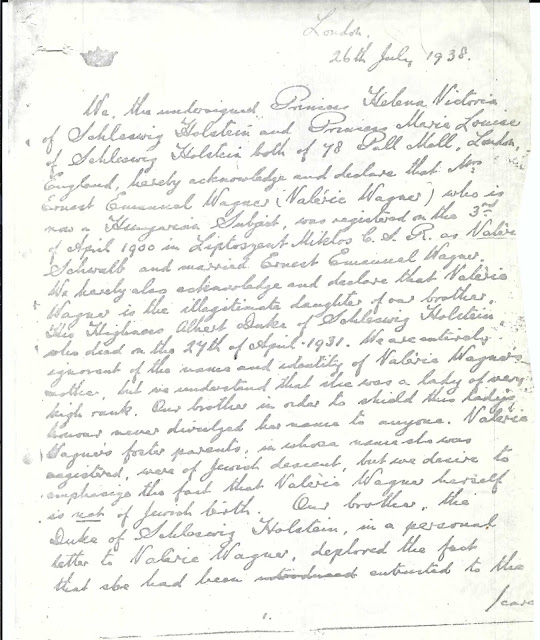 London.
26th July, 1938.
We, the undersigned, Princess Helena Victoria
of Schleswig Holstein and Princess Marie Louise
of Schleswig Holstein both of 78 Pall Mall, London,
England, hereby acknowledge and declare that Mrs
Ernest Emanuel Wagner (Valérie Wagner) who is
now a Hungarian Subject, was registered on the 3rd
of April 1900 in Liptoszent Miklos C. S. R. as Valérie
Schwalb and married Ernest Emanuel Wagner.
We hereby also acknowledge and declare that Valérie
Wagner is the illegitimate daughter of our brother,
His Highness Albert Duke of Schleswig Holstein
who died on the 27th of April 1931. We are entirely
ignorant of the names and identity of Valérie Wagner's
mother, but we understand that she was a lady of very
high rank. Our brother in order to shield this lady's
honour never divulged her name to anyone. Valérie
Wagner's foster parents, in whose name she was
registered, were of Jewish descent, but we desire to
emphasize the fact that Valérie Wagner herself
is not of Jewish birth. Our brother, the
Duke of Schleswig Holstein, in a personal
letter to Valérie Wagner, deplored the fact
that she had been introduced entrusted to the
/care
1.